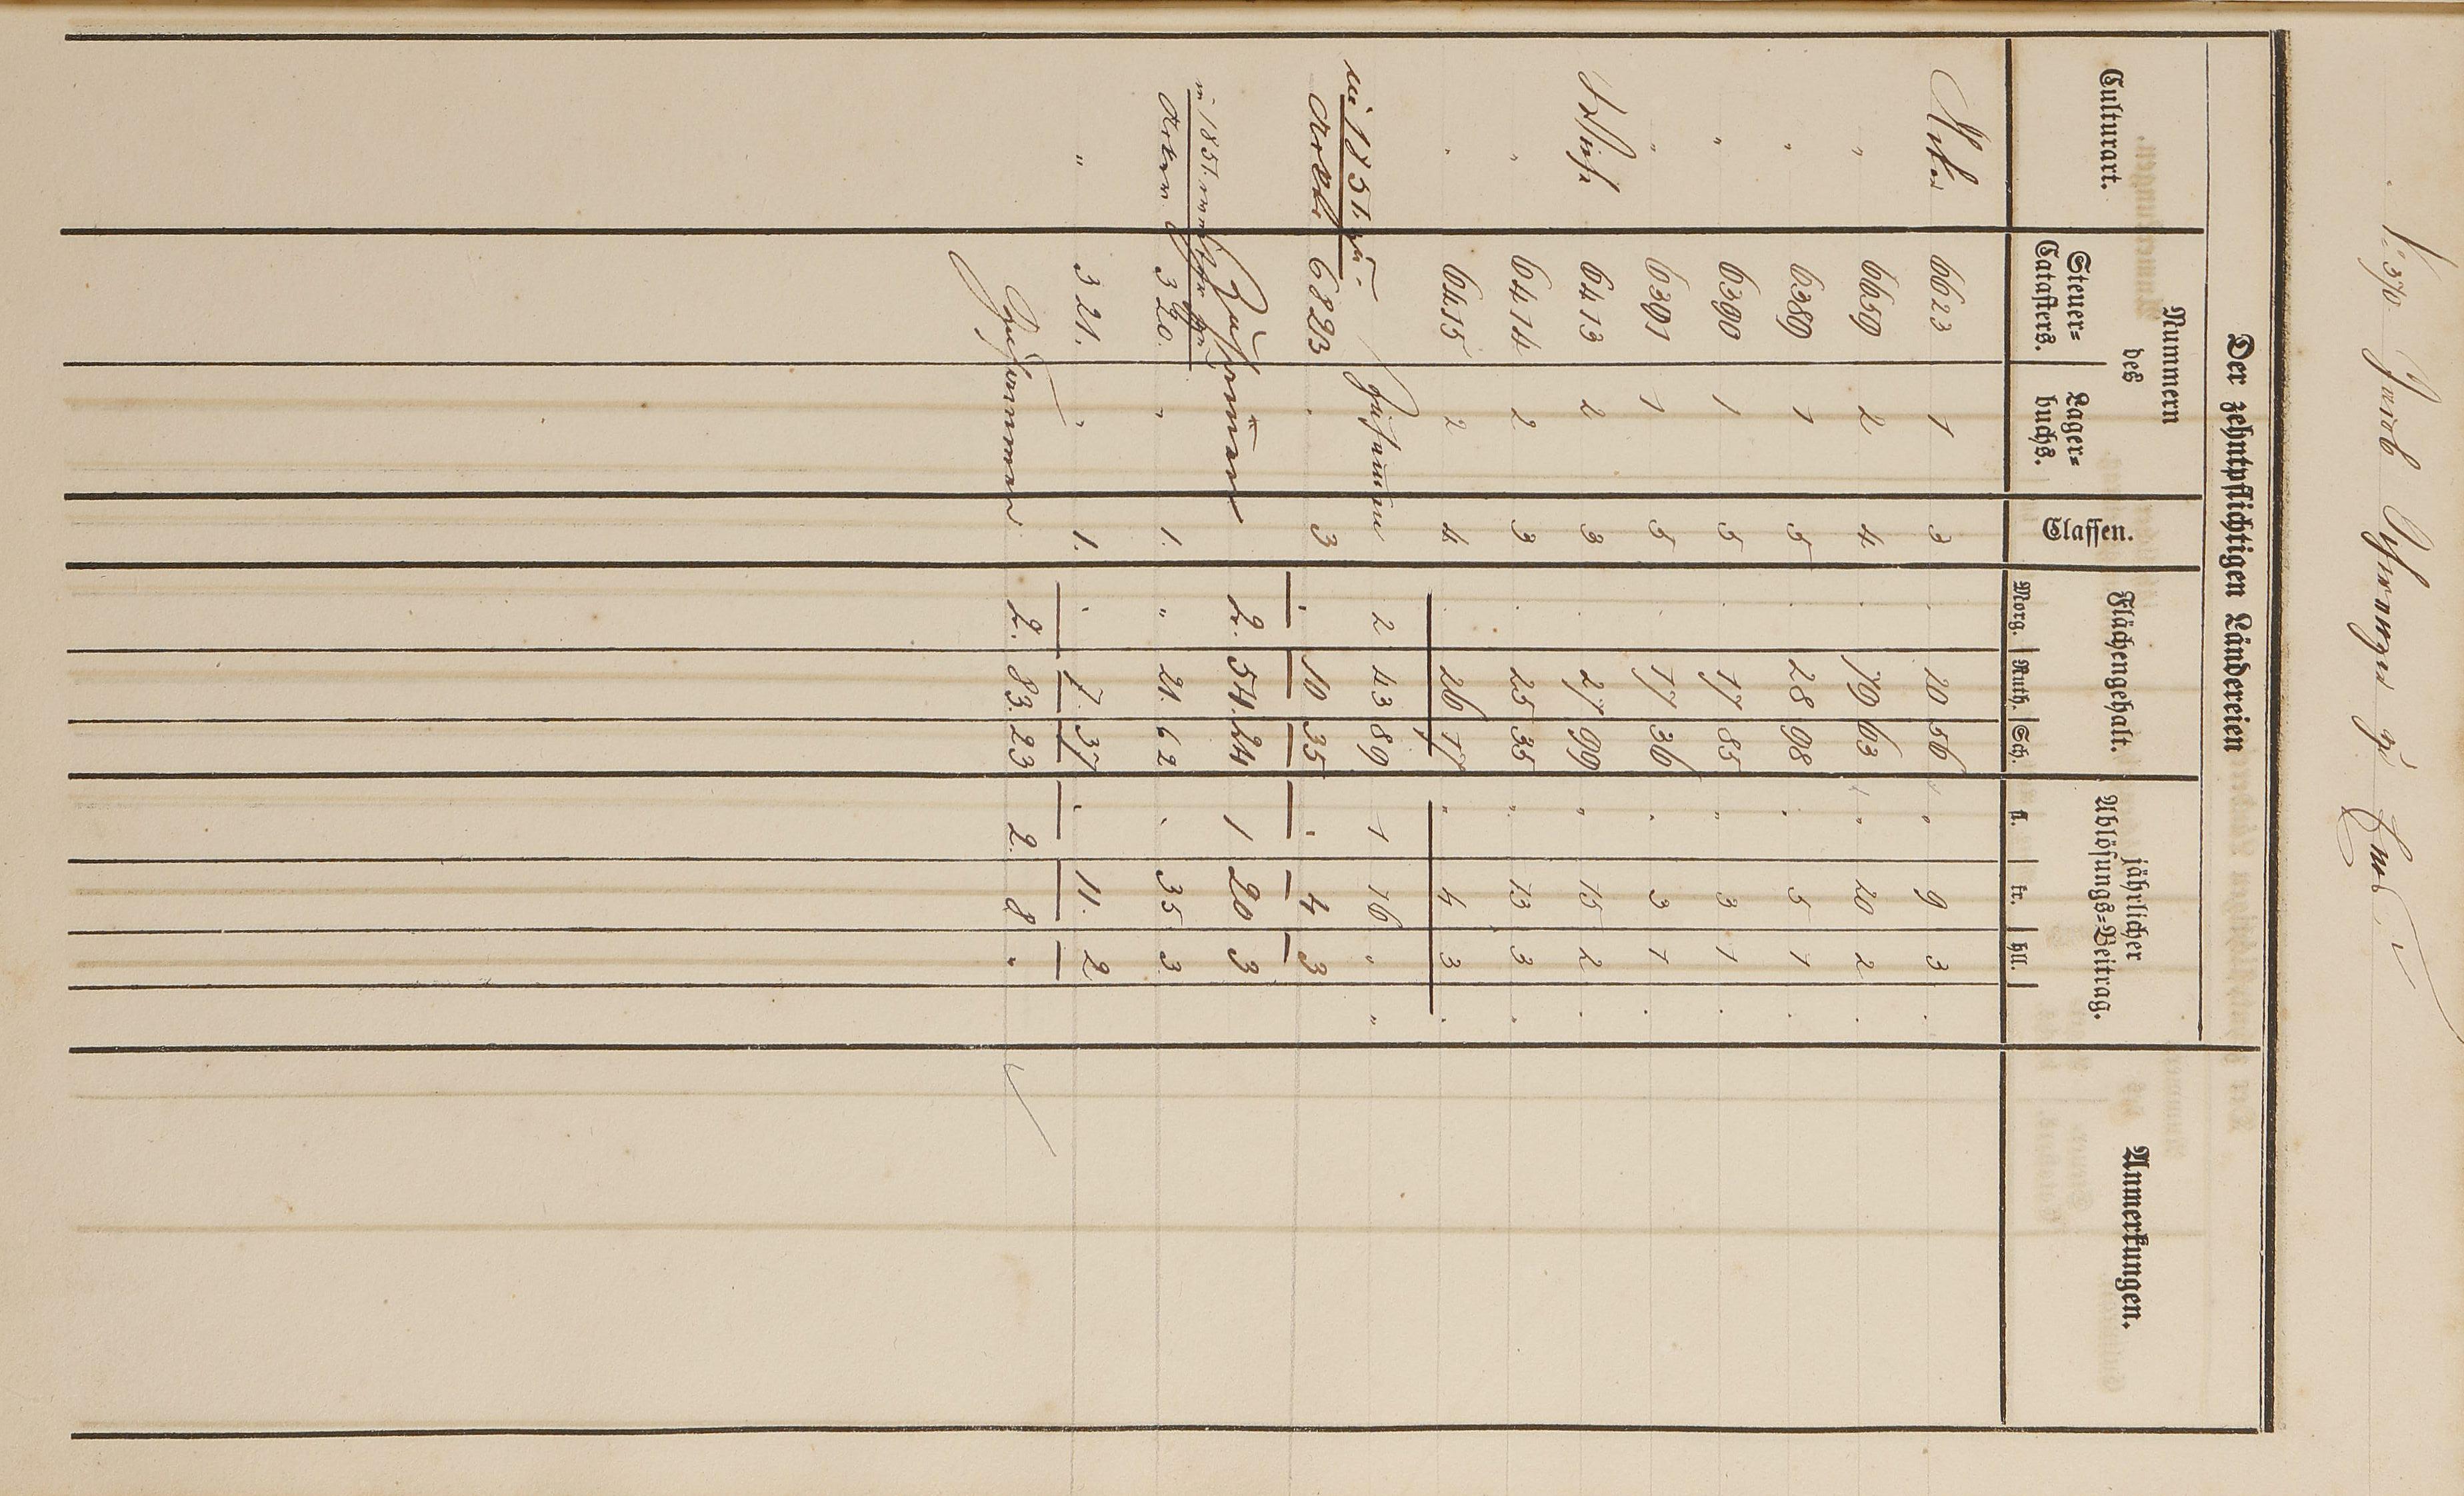 Jacob
Der zehntpflichtigen Ländereien
Culturart.
Nummern des
Steuer= Catasters.
Lager= buchs.
Classen.
Flächengehalt.
Morg. Ruth. Sch.
jährlicher Ablösungs=Beitrag.
fl. kr. hll.
Anmerkungen.
Acker 6623 1 3 . 20 56 " 9 3 .
" 6659 2 4 . 79 63 " 20 2 .
" 6389 1 5 . 28 98 " 5 1 .
" 6390 1 5 . 17 85 " 3 1 .
" 6391 1 5 . 17 36 " 3 1
Wiese 6413 2 3 . 27 99 " 15 2 .
" 6414 2 3 . 25 35 " 13 3 .
" 6415 2 4 . 26 17 " 4 3 .
Zusammen 2 43 89 1 16 " "
in 1851. zu.
Acker 6823 . 3 . 10 35 . 4 3
Zusammen 2. 54. 24 1 20 3
in 1851.
Acker. 320. " 1. " 21. 62 . 35 3
" 321. " 1. . 7. 37 . 11. 2
Zusammen 2. 83. 23 2. 8 "